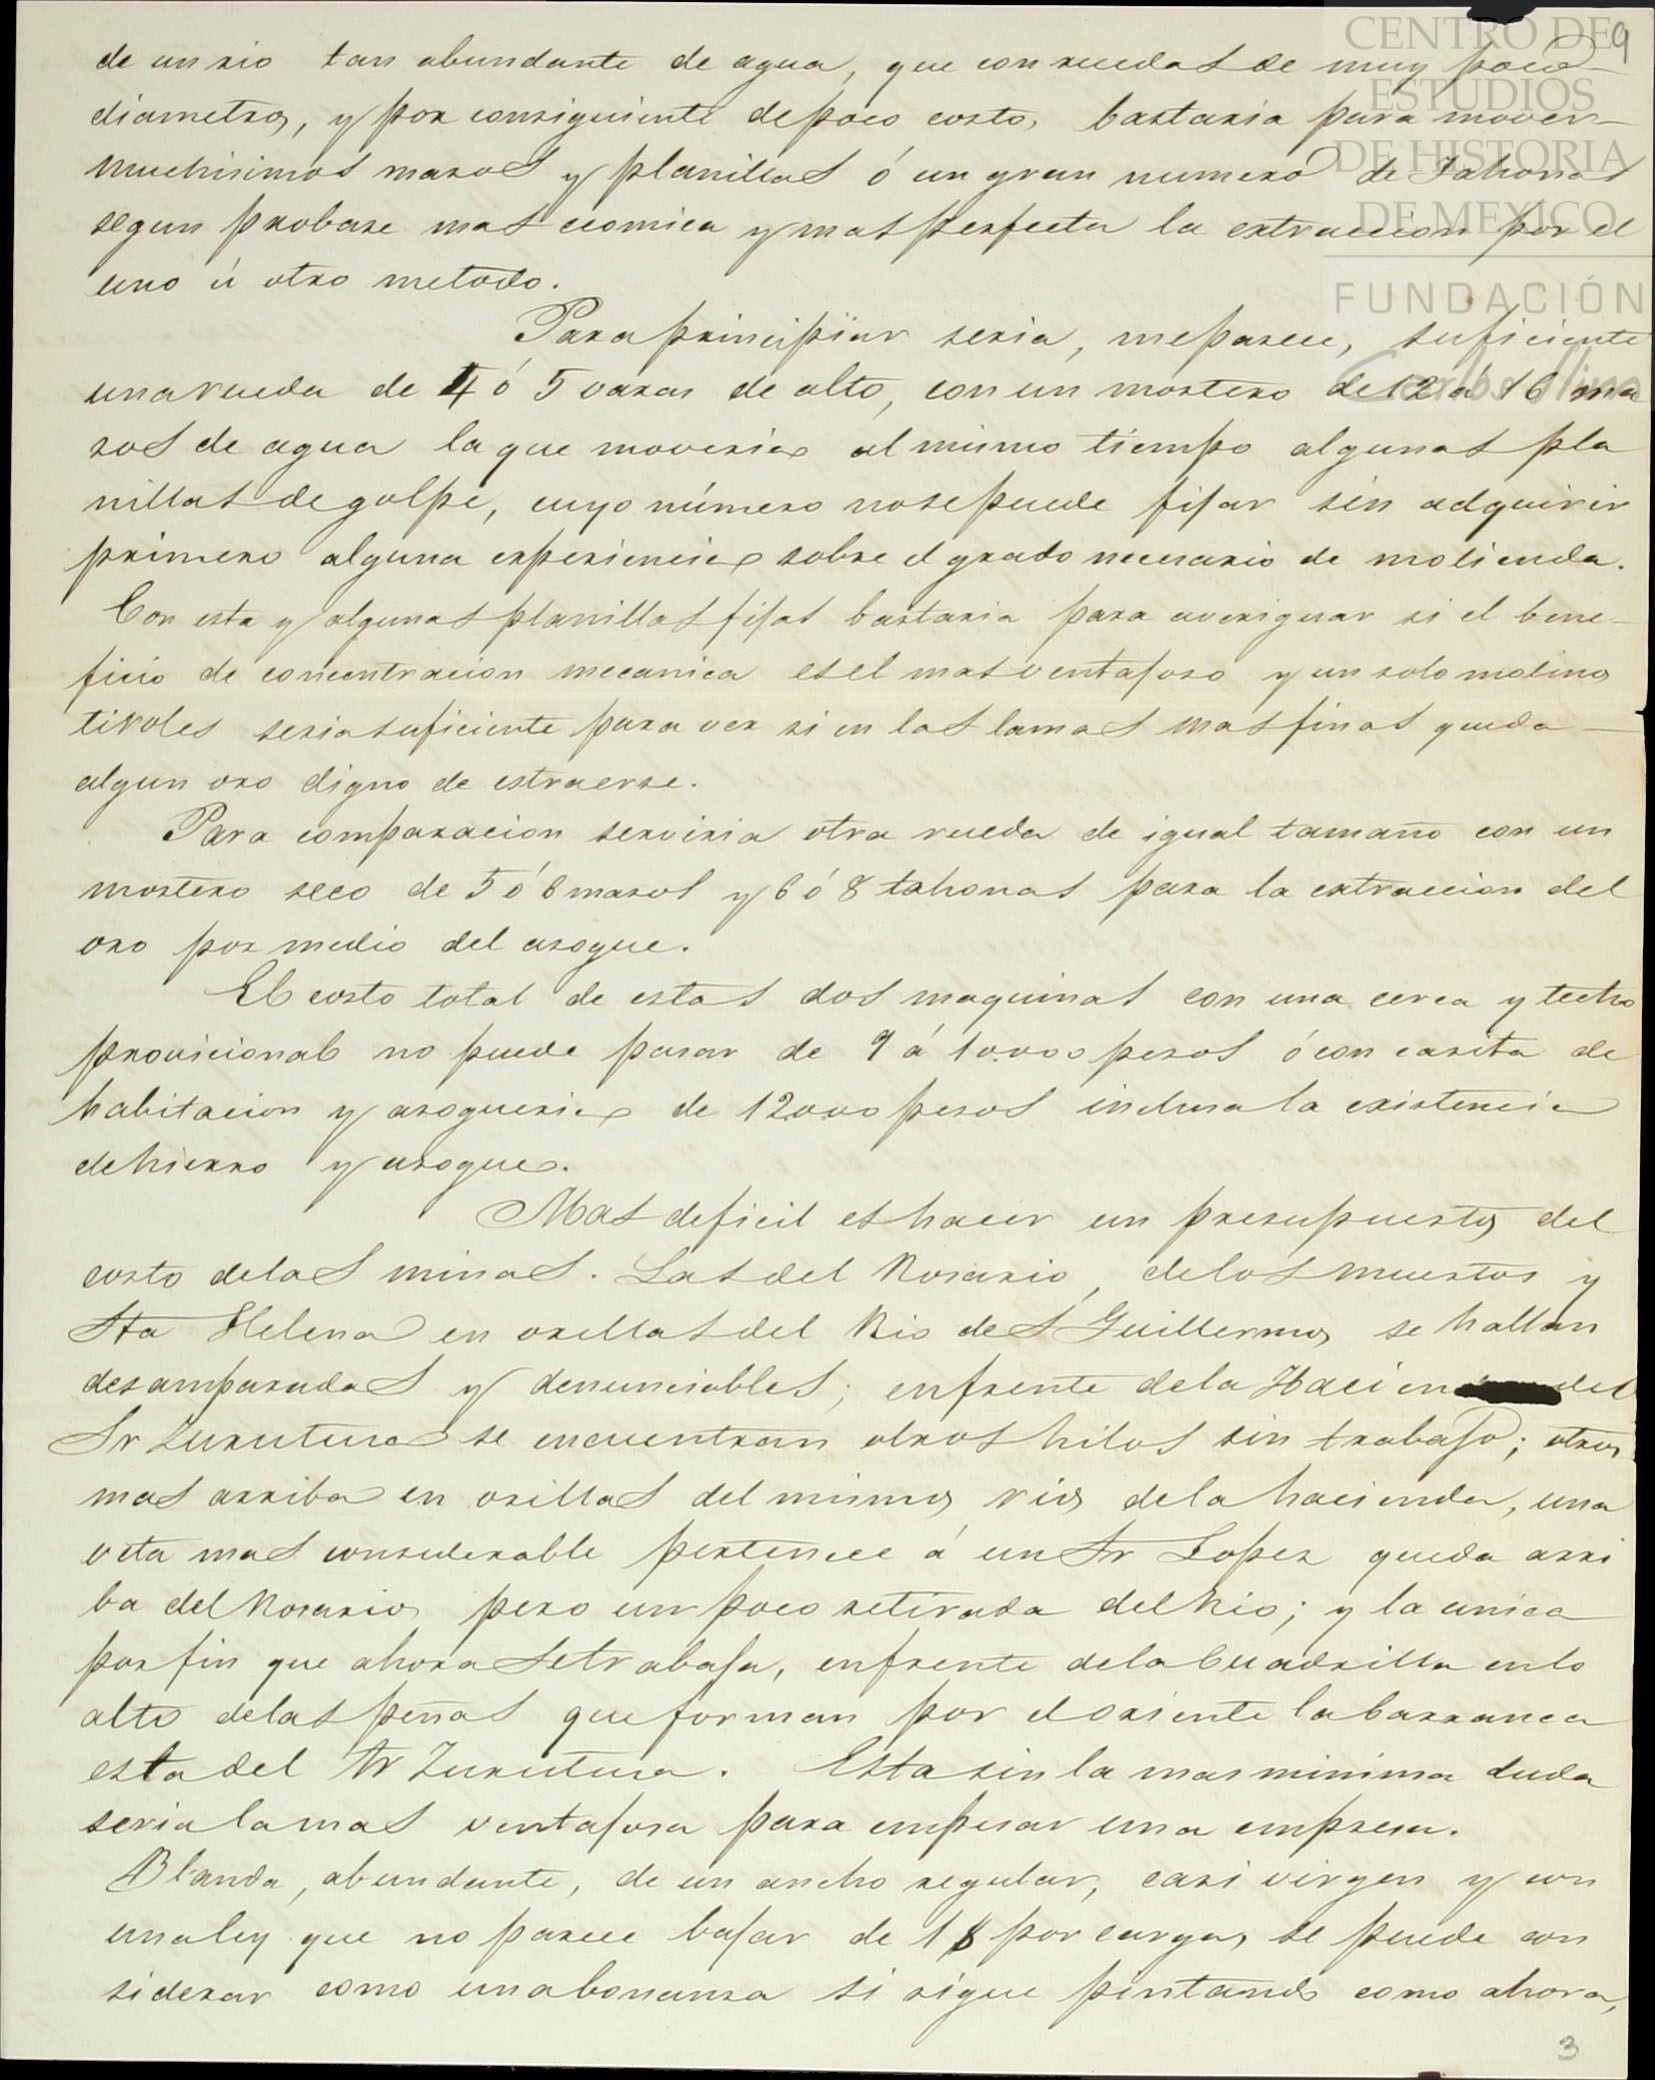 9
CENTRO DE
ESTUDIOS
DE HISTORIA
DE MEXICO
FUNDACIÓN
Carlos Slim
de un rio tan abundante de agua, que con ruedas de muy poco
diametro, y por consiguiente de poco costo, bastaria para mover
muchisimos masos y planillas ó un gran numero de Tahonas
segun probase mas ecomica y mas perfecta la extraccion por el
uno ú otro metodo.
Para principiar seria, me parece, suficiente
una rueda de 4 ó 5 varas de alto, con un mortero de 12 á 16 ma
sos de agua la que moveria al mismo tiempo algunas pla
nillas de golpe, cuyo número no se puede fijar sin adquirir
primero alguna experiencia sobre el grado necesario de molienda.
Con esta y algunas planillas fijas bastaria para averiguar si el bene-
ficio de concentracion mecanica es el mas ventajoso y un solo molino
tiroles seria suficiente para ver si en las lamas mas finas queda
algun oro digno de estraerse.
Para comparacion serviria otra rueda de igual tamaño con un
mortero seco de 5 ó 6 masos y 6 ó 8 tahonas para la extraccion del
oro por medio del asogue.
El costo total de estas dos maquinas con una cerca y techo
provicional no puede pasar de 9 á 10.000 pesos ó con casita de
habitacion y asogueria de 12.000 pesos inclusa la existencia
de hierro y asogue.
Mas deficil es hacer un presupuesto del
costo de las minas. Las del Rosario, de los muertos y
Sta Helena en orillas del Rio de S Guillermo, se hallan
desamparadas y denunciables; enfrente de la Hacien del
Sr Zurutuza se encuentran otros hilos sin trabajo; otros
mas arriba en orillas del mismo rio de la hacienda, una
veta mas considerable pertenece á un Sr Lopez queda arri
ba del Rosario, pero un poco retirada del Rio; y la unica
por fin que ahora se trabaja, enfrente de la Cuadrilla en lo
alto de las peñas que forman por el oriente la barranca
esta del Sr Zurutuza. Esta sin la mas minima duda
seria la mas ventajosa para empesar una empresa.
Blanda, abundante, de un ancho regular, casi virgen y con
una ley que no parece bajar de 1 $ por carga, se puede con
siderar como una bonansa si sigue pintando como ahora,
3